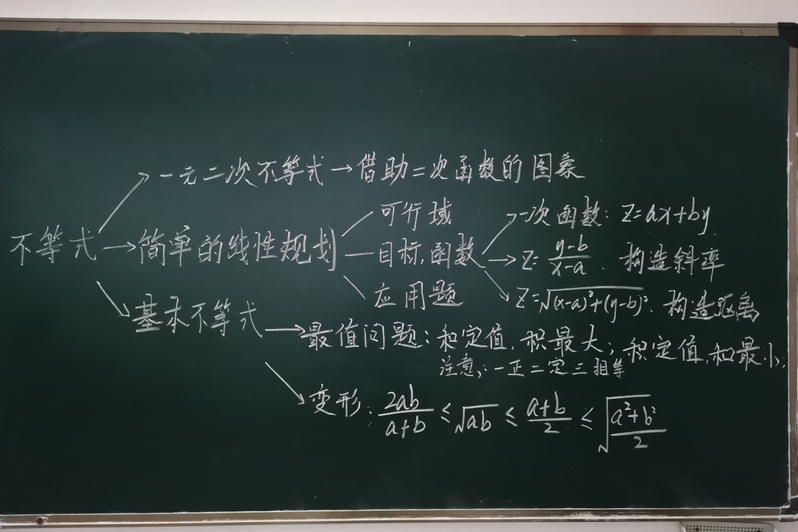 →一元二次不等式→借助二次函数的图象
可行域
一次函数: Z=ax+by
不等式→简单的线性规划—目标函数→Z=\frac{y-b}{x-a}. 构造斜率
应用题
Z=\sqrt{(x-a)²+(y-b)²}. 构造距离
基本不等式→最值问题:和定值,积最大;积定值,和最小;
注意:一正二定三相等
变形:\frac{2ab}{a+b}≤\sqrt{ab}≤\frac{a+b}{2}≤\sqrt{\frac{a²+b²}{2}}